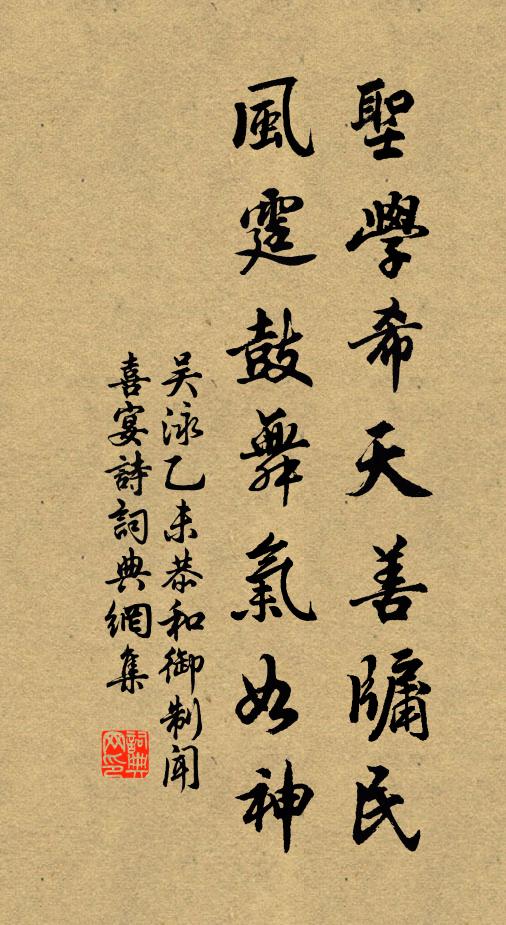 聖學希天善牖民
風霆鼓舞氣如神
吴泳乙未恭和御制聞
喜宴詩詞典網集
詞典
网印